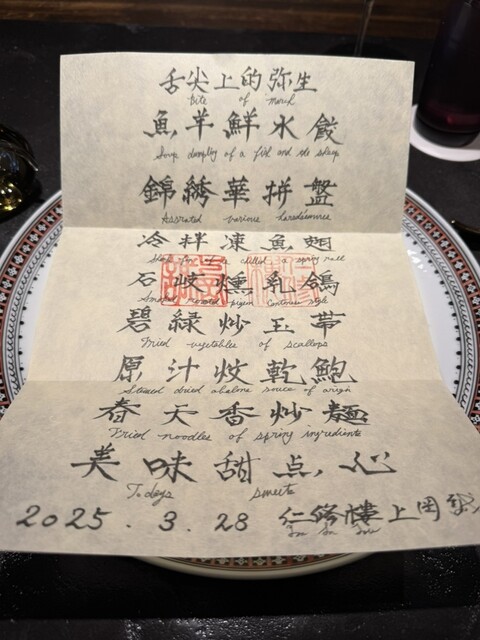 舌尖上的弥生
bite of march
魚羊鮮水餃
Soup dumpling of a fish and the sheep
錦綉華拼盤
Assorted various
冷拌凍魚翅
chilled a spring roll
石岐燻乳鴿
Smoked roasted pigeon Cantonese style
碧緑炒玉帯
Fried vegetables of scallops
原汁炆乾鮑
Stewed dried abalone sauce of origin
春天香炒麺
Fried noodles of spring ingredients
美味甜点心
Todays sweets
2025.3.28 仁修樓上岡